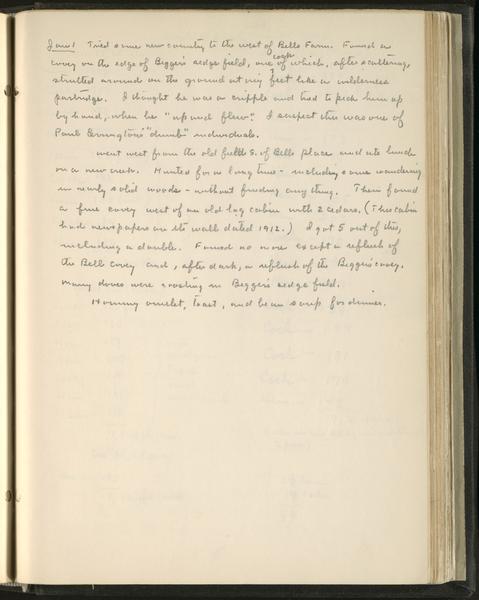 Jan 1 Tried some new country to the west of Bells Farm. Found a
covey on the edge of Beggers sedge field, one cock of which, after scattering,
strutted around on the ground at my feet like a wilderness
partridge. I thought he was a cripple and tried to pick him up
by hand, when he "up and flew". I suspect this was one of
Paul Errington's "dumb" individuals.
Went west from the old field S. of Bells place and ate lunch
on a new creek. Hunted for a long time - including some wandering
in nearly solid woods - without finding anything. Then found
a fine covey west of an old log cabin with 2 cedars. (This cabin
had newspapers on its wall dated 1912.) I got 5 out of this,
including a double. Found no more except a reflush of
the Bells covey and, after dark, a reflush of the Beggers covey.
Many doves were roosting in Beggers sedge field.
Hominy omelet, toast, and bean soup for dinner.